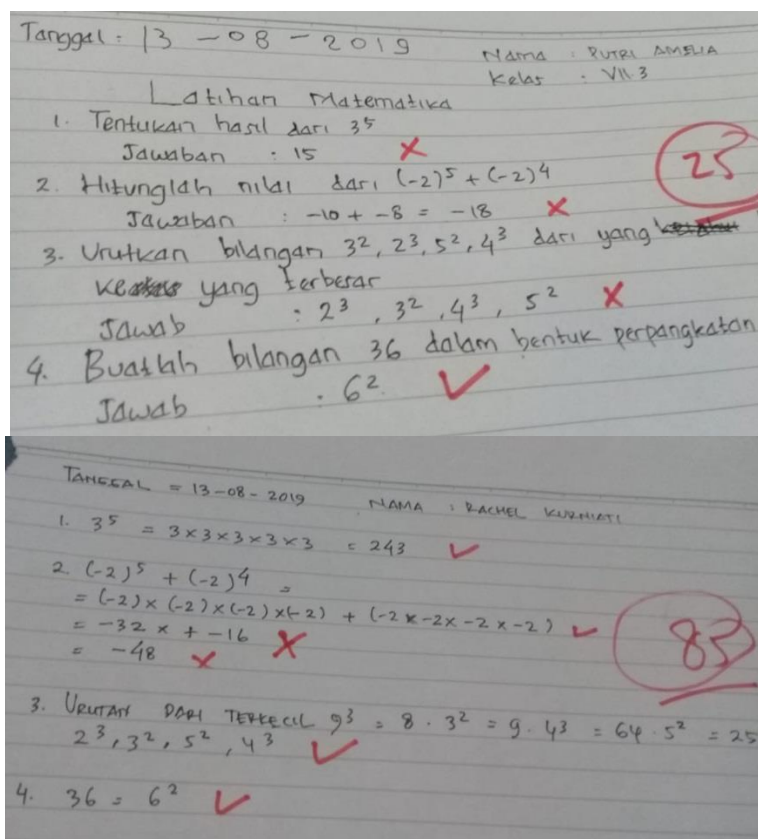 Tanggal : 13 - 08 - 2019
Nama : PUTRI AMELIA
Kelas : VII.3
Latihan Matematika
1. Tentukan hasil dari 3⁵
Jawaban : 15
25
2. Hitunglah nilai dari (-2)⁵ + (-2)⁴
Jawaban : -10 + -8 = -18
3. Urutkan bilangan 3², 2³, 5², 4³ dari yang
ke yang terbesar
Jawab : 2³, 3², 4³, 5²
4. Buatlah bilangan 36 dalam bentuk perpangkatan
Jawab : 6²
TANGGAL = 13-08-2019 NAMA : RACHEL KURNIATI
1. 3⁵ = 3×3×3×3×3 = 243
2. (-2)⁵ + (-2)⁴ =
= (-2)×(-2)×(-2)×(-2) + (-2×-2×-2×-2)
= -32 × + -16
= -48
85
3. URUTAN DARI TERKECIL 9³ = 8 . 3² = 9 . 4³ = 64 . 5² = 25
2³, 3², 5², 4³
4. 36 = 6²